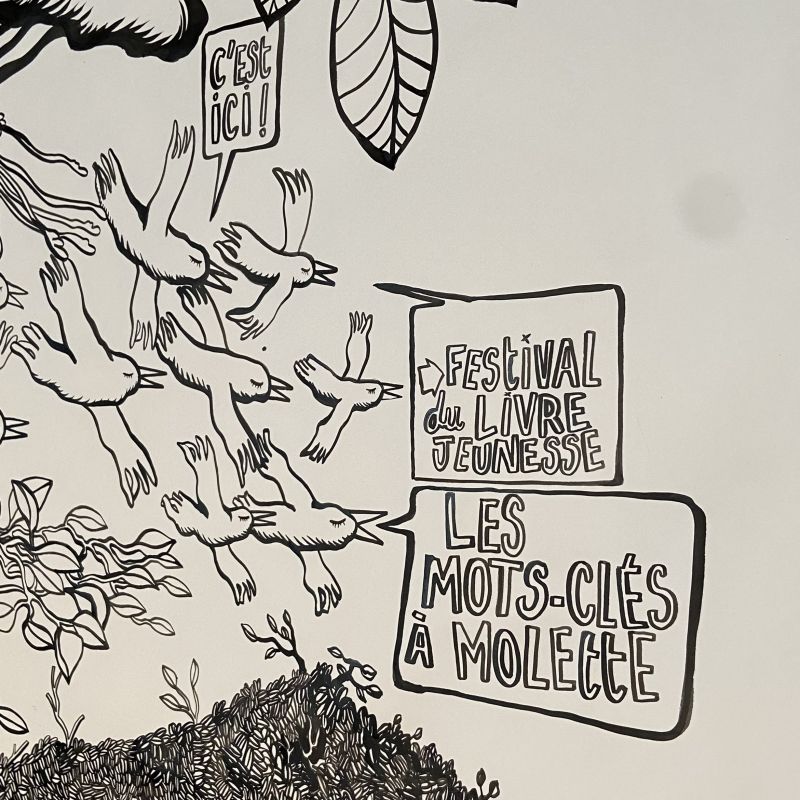 C'ESt
iCi !
FEStiVAL
du LiVRE
JEUNESSE
LES
MOTS-CLÉS
À MOLEttE